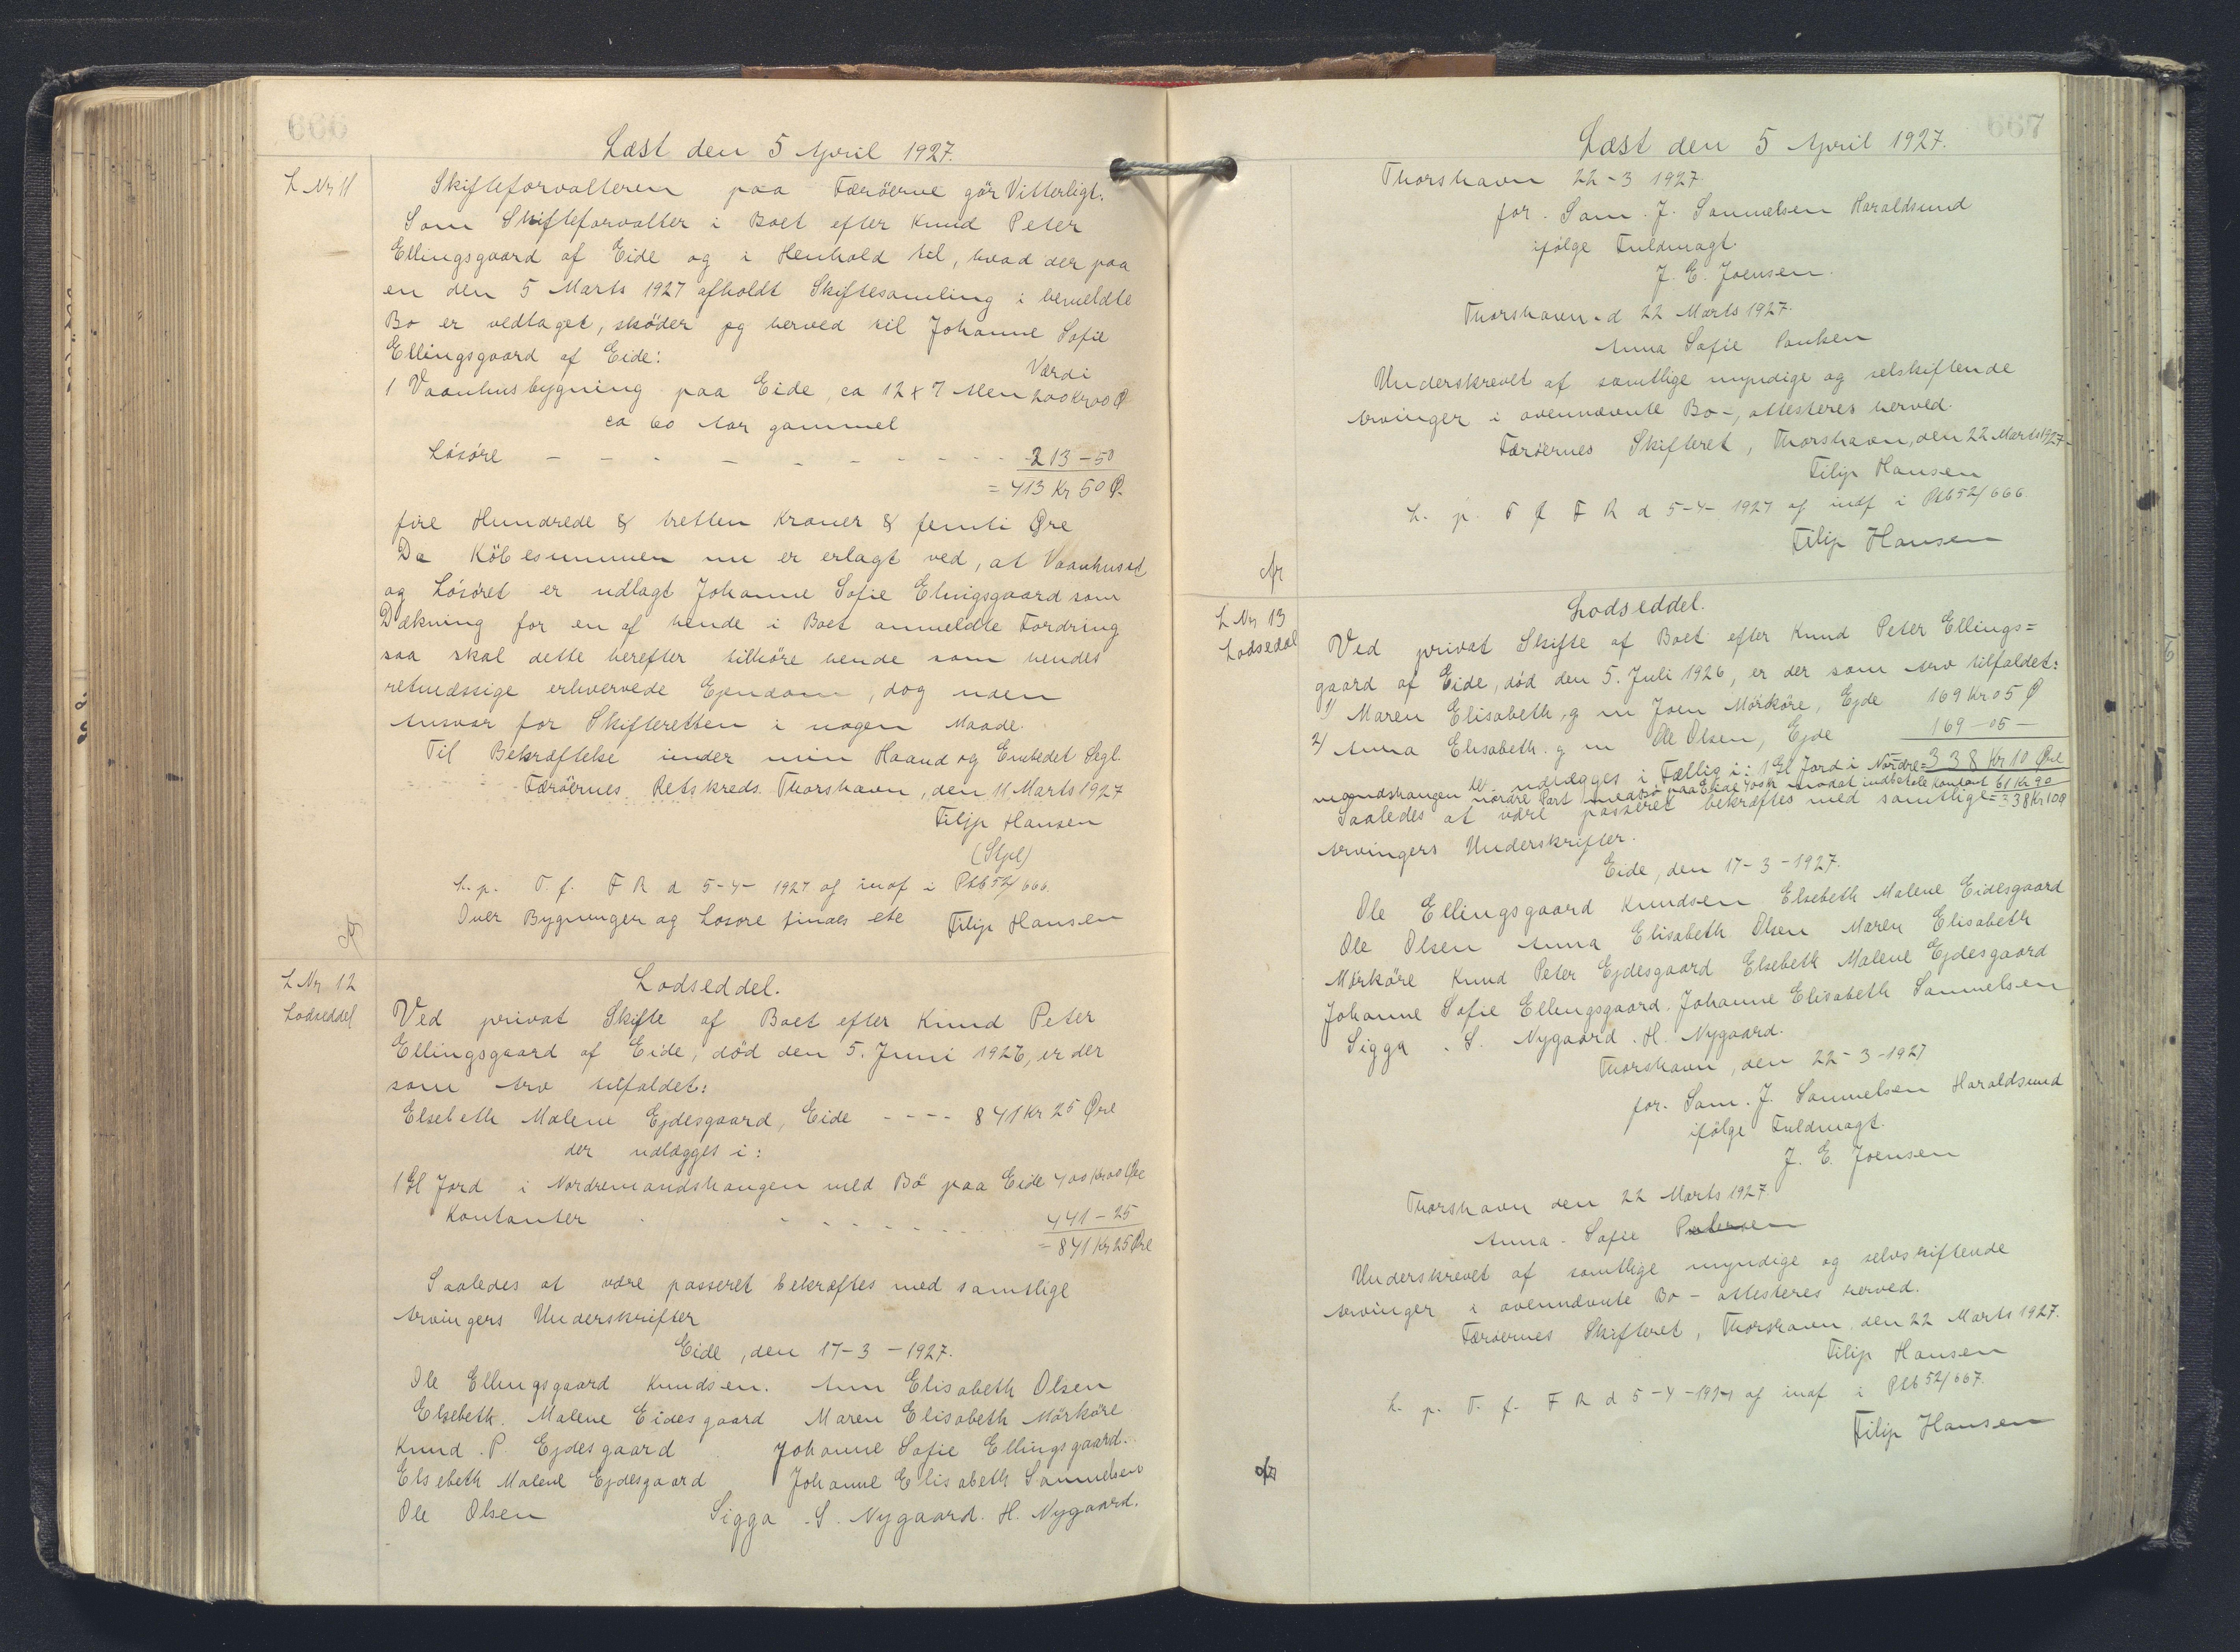 666
Læst den 5 April 1927.
L Nr 11
Skifteforvalteren paa Færöerne gör Vitterligt:
Som Skifteforvalter i Boet efter Knud Peter
Ellingsgaard af Eide og i Henhold til, hvad der paa
en den 5 Marts 1927 afholdt Skiftesamling i bemeldte
Bo er vedtaget, sköder jeg herved til Johanne Sofie
Ellingsgaard af Eide:
Værdi
1 Vaanhusbygning paa Eide, ca 12 x 7 Alen 200 Kr 00 Ø
ca 60 Aar gammel
Lösöre - - - - - - - - - 213-50
= 413 Kr 50 Ø.
fire Hundrede & tretten Kroner & femti Øre
Da Köbesummen nu er erlagt ved, at Vaanhuset
og Lösöret er udlagt Johanne Sofie Elingsgaard som
Dækning for en af hende i Boet anmeldte Fordring
saa skal dette herefter tilhöre hende som hendes
retmæssige erhvervede Ejendom, dog uden
Ansvar for Skifteretten i nogen Maade.
Til Bekræftelse under min Haand og Embedet Segl.
Færöernes Retskreds Thorshavn, den 11 Marts 1927
Filip Hansen
(Stpl)
L. p. T. f. F R d 5-4-1927 og indf i Ptb 52/666.
Over Bygninger og Losore findes ete Filip Hansen
L Nr 12
Lodseddel
Lodseddel.
Ved privat Skifte af Boet efter Knud Peter
Ellingsgaard af Eide, död den 5. Juni 1926, er der
som Arv tilfaldet:
Elsebeth Malene Ejdesgaard, Eide - - - - 841 Kr 25 Øre
der udlægges i:
1 Gl Jord i Nordremandshangen med Bö paa Eide 400 Kr 00 Øre
Kontanter - - - - - - 441-25
= 841 Kr 25 Øre
Saaledes at være passeret bekræftes med samtlige
Arvingers Underskrifter
Eide, den 17-3-1927.
Ole Ellingsgaard Knudsen. Ann Elisabeth Olsen
Elsebeth. Malene Eidesgaard Maren Elisabeth Mörköre
Knud. P. Ejdesgaard Johanne Sofie Ellingsgaard.
Elsebeth Malene Ejdesgaard Johanne Elisabeth Samuelsen
Ole Olsen Sigga. S. Nygaard. H. Nygaard.
667
Læst den 5 April 1927.
Thorshavn 22-3 1927
for. Sam. J. Samuelsen Haraldsund
ifölge Fuldmagt.
J. E. Joensen.
Thorshavn. d 22 Marts 1927.
Anna Sofie
Underskrevet af samtlige myndige og selskiftende
Arvinger i ovennævnte Bo-, attesteres herved.
Færöernes Skifteret, Thorshavn, den 22 Marts 1927-
Filip Hansen
L. p. T f F R d 5-4-1927 og indf i Ptb 52/666.
Filip Hansen
L Nr 13
Lodsedel
Lodseddel.
Ved privat Skifte af Boet efter Knud Peter Ellings=
gaard af Eide, död den 5. Juli 1926, er der som Arv tilfaldet:
1) Maren Elisabeth, g m Joen Mörköre, Ejde 169 Kr 05 Ø
2) Anna Elisabeth. g m Ole Olsen, Ejde 169-05-
udlægges i Fællig i: 1 Gl Jord i Nordre= 338 Kr 10 Øre
mandshangen nordre Part med Bö paa Eide 400 Kr modat indbetale Kontant 61 Kr 90
Saaledes at være passeret bekræftes med samtlige = 338 Kr 10 Ø
Arvingers Underskrifter.
Eide, den 17-3-1927.
Ole Ellingsgaard Knudsen Elsebeth Malene Eidesgaard
Ole Olsen Anna Elisabeth Olsen Maren Elisabeth
Mörköre Knud Peter Ejdesgaard Elsebeth Malene Ejdesgaard
Johanne Sofie Ellengsgaard. Johanne Elisabeth Samuelsen
Sigga. S. Nygaard. H. Nygaard.
Thorshavn, den 22-3-1927
for. Sam. J. Samuelsen Haraldsund
ifölge Fuldmagt.
J. E. Joensen
Thorshavn den 22 Marts 1927
Anna. Sofie
Underskrevet af samtlige myndige og selvskiftende
Arvinger i ovennævnte Bo- attesteres herved.
Færöernes Skifteret, Thorshavn, den 22 Marts 1927.
Filip Hansen
L. p. T. f. F R d 5-4-1927 og indf i Ptb 52/667.
Filip Hansen